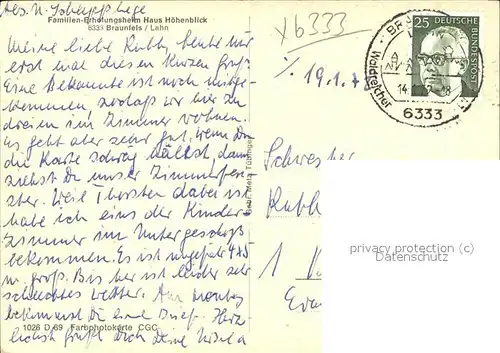 Familien-Erholungsheim Haus Höhenblick
6333 Braunfels / Lahn
Meine liebe Ruth, heute nur
erst mal diesen kurzen Gruß.
Eine Bekannte ist noch mitge-
kommen, sodaß wir hier zu
dreien im Zimmer wohnen.
Es geht aber sehr gut, wenn Du
die Karte schräg hältst, dann
siehst Du unser Zimmerfen-
ster. Weil Thorsten dabei ist
habe ich eins der Kinder-
zimmer im Untergeschoß
bekommen. Es ist ungefähr 4x5
m. groß. Bis hier ist leider sehr
schlechtes Wetter. Am Montag
bekommst Du eine Brief. Herz-
lichst grüßt Dich Deine
1026 D 69 Farbphotokarte CGC
Gebr. Metz, Tübingen
x6333
19.1.
25
DEUTSCHE
BUNDESPOST
6333
Schwester
Ruth
1
privacy protection (c)
oldthing.de